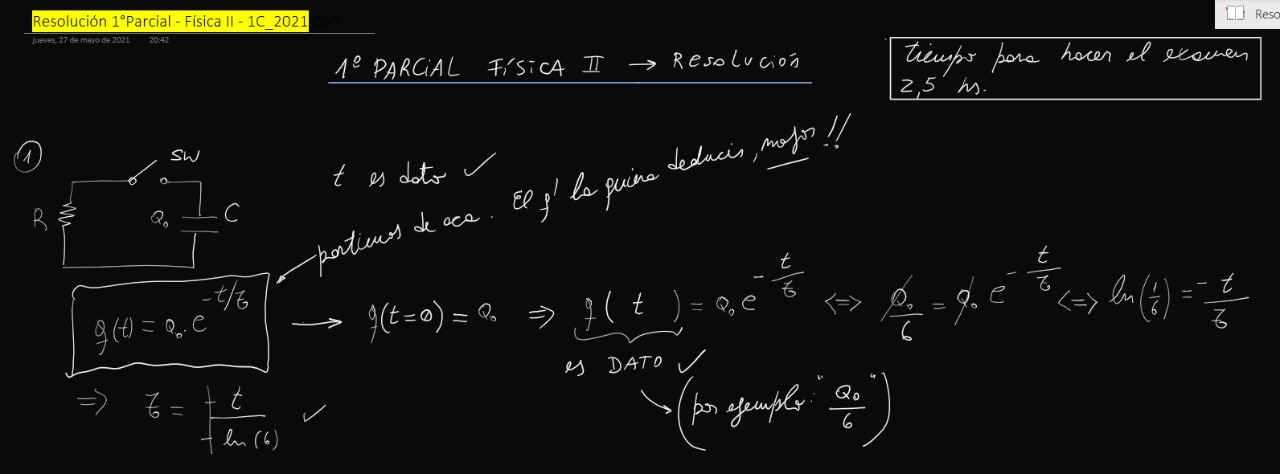 Resolución 1°Parcial - Física II - 1C_2021 Con
jueves, 27 de mayo de 2021 20:42
Reso
1º PARCIAL FÍSICA II → Resolución
tiempo para hacer el examen
2,5 hs.
①
SW
R
Q₀
C
t es dato ✓
partimos de aca. El q' la quiera deducir, mejor!!
q(t) = Q₀.e^(-t/τ) → q(t=0) = Q₀ ⇒ q( t ) = Q₀ e^(-t/τ) <=> Q₀/6 = Q₀ e^(-t/τ) <=> ln(1/6) = -t/τ
es DATO ✓
(por ejemplo: "Q₀/6")
⇒ τ = -t/-ln(6) ✓